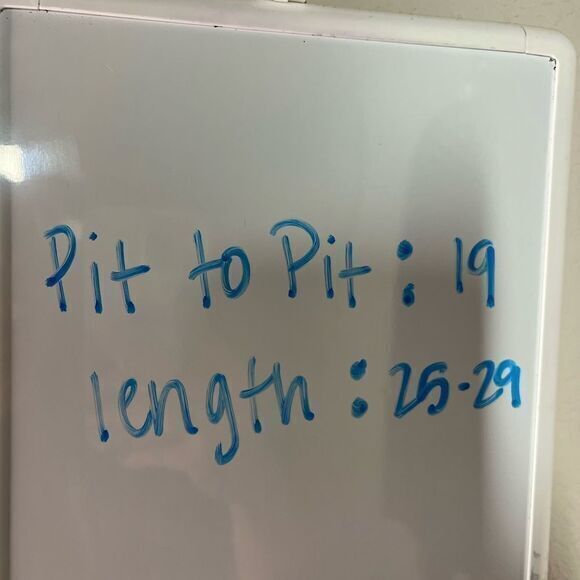 Pit to Pit : 19
length : 25-29